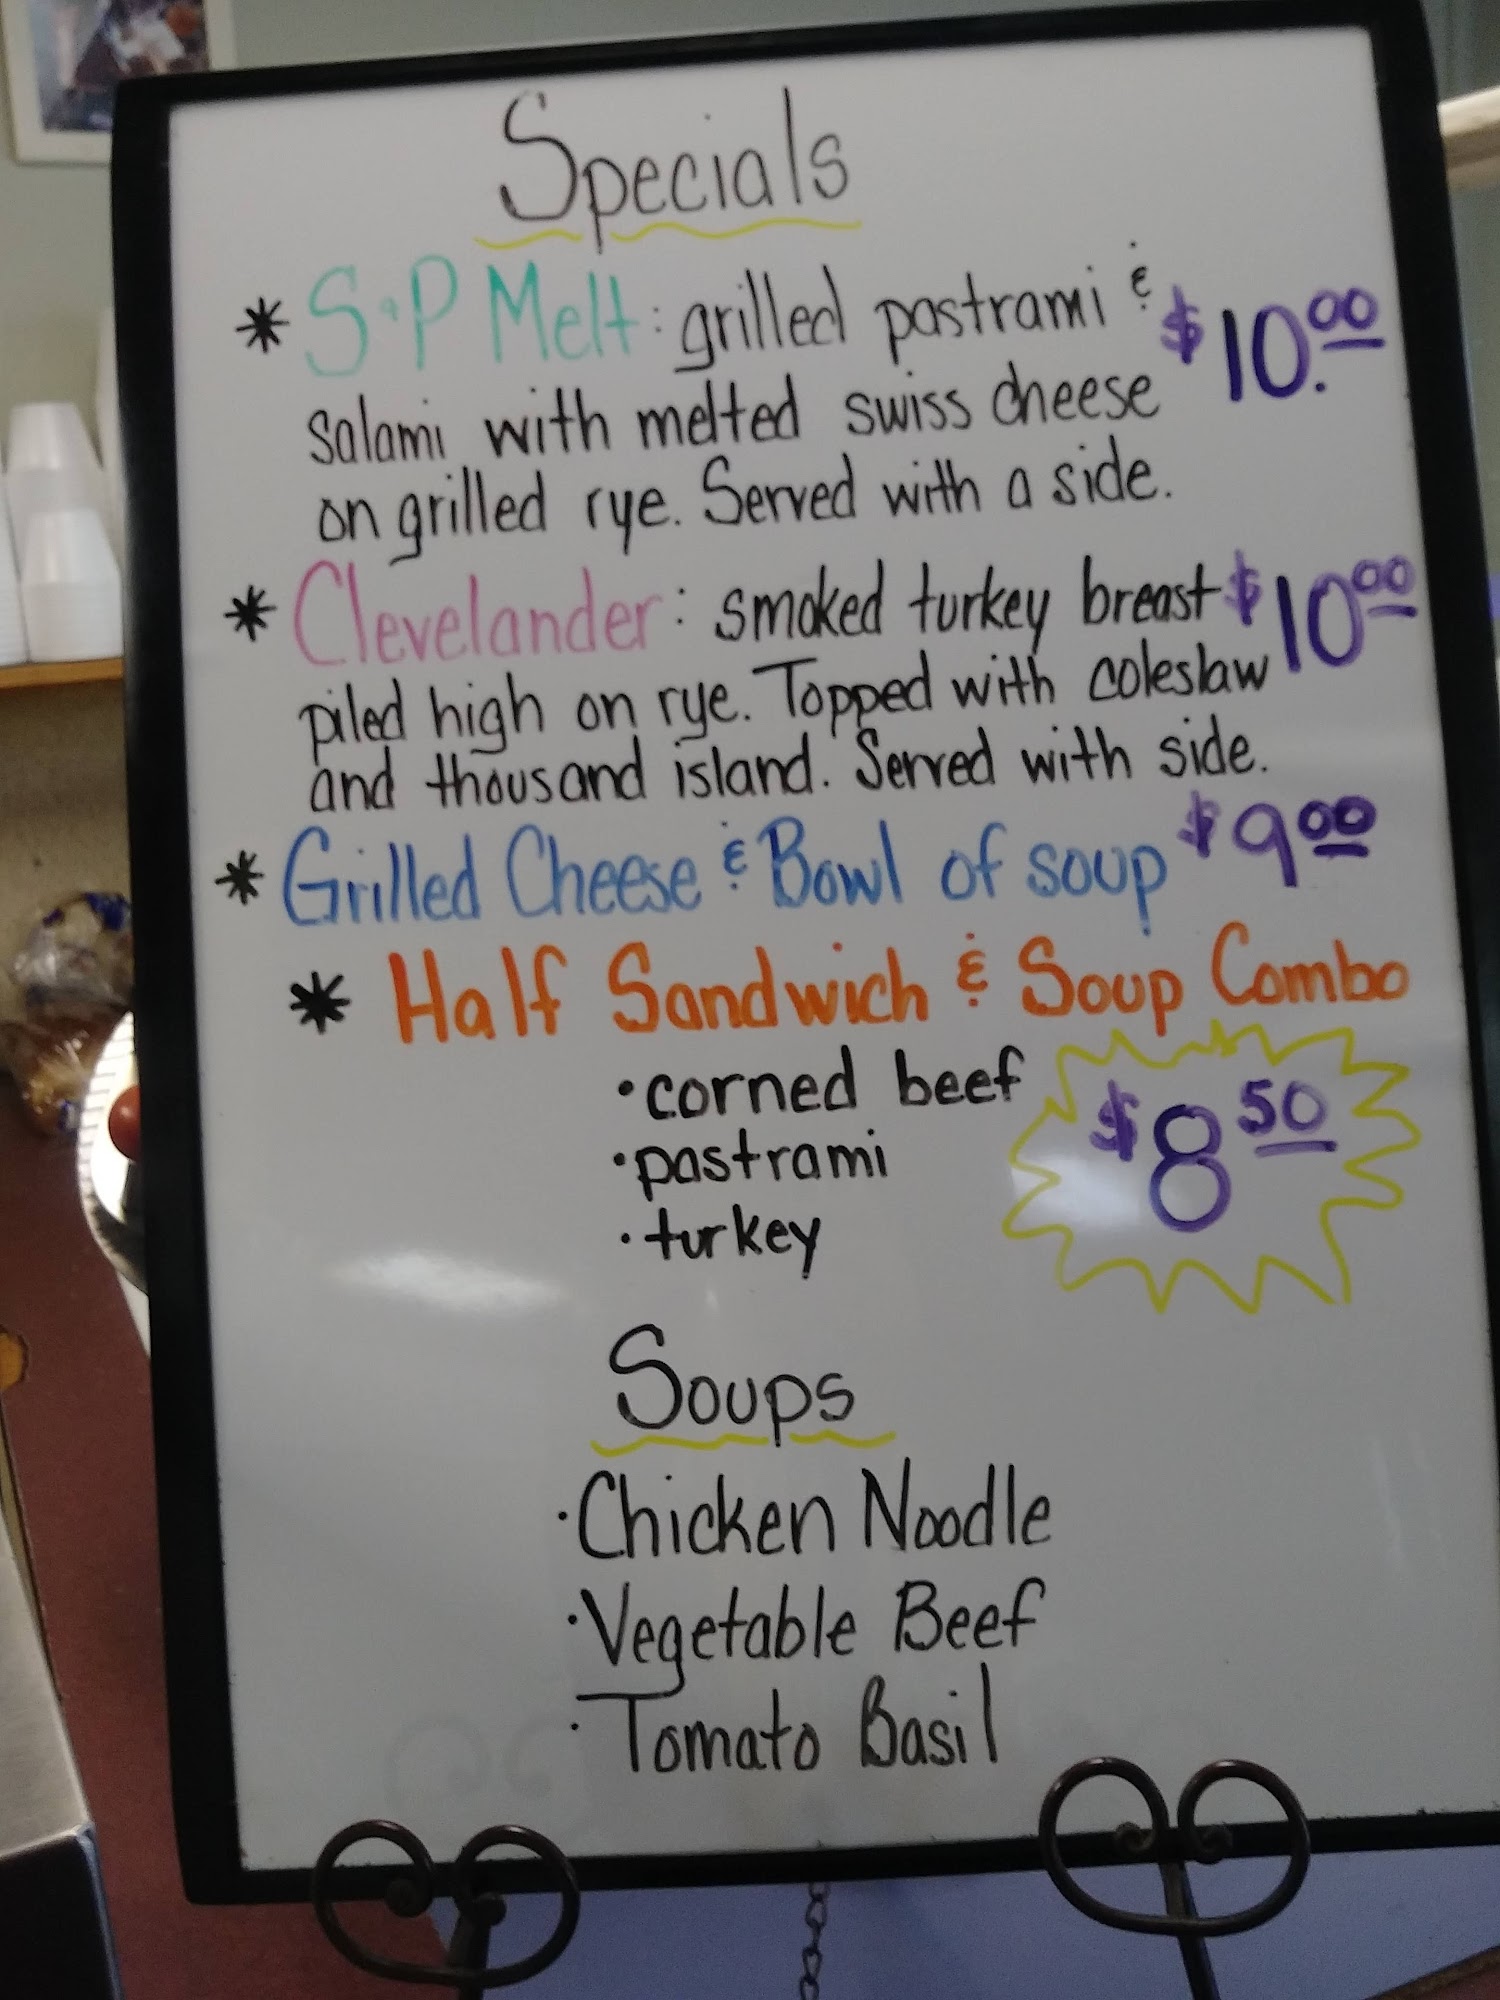 Specials
* S+P Melt: grilled pastrami & $10.00
salami with melted swiss cheese
on grilled rye. Served with a side.
* Clevelander: smoked turkey breast $10 00
piled high on rye. Topped with coleslaw
and thousand island. Served with side.
* Grilled Cheese & Bowl of soup $9 00
* Half Sandwich & Soup Combo
• corned beef
• pastrami
• turkey
$8 50
Soups
• Chicken Noodle
• Vegetable Beef
• Tomato Basil